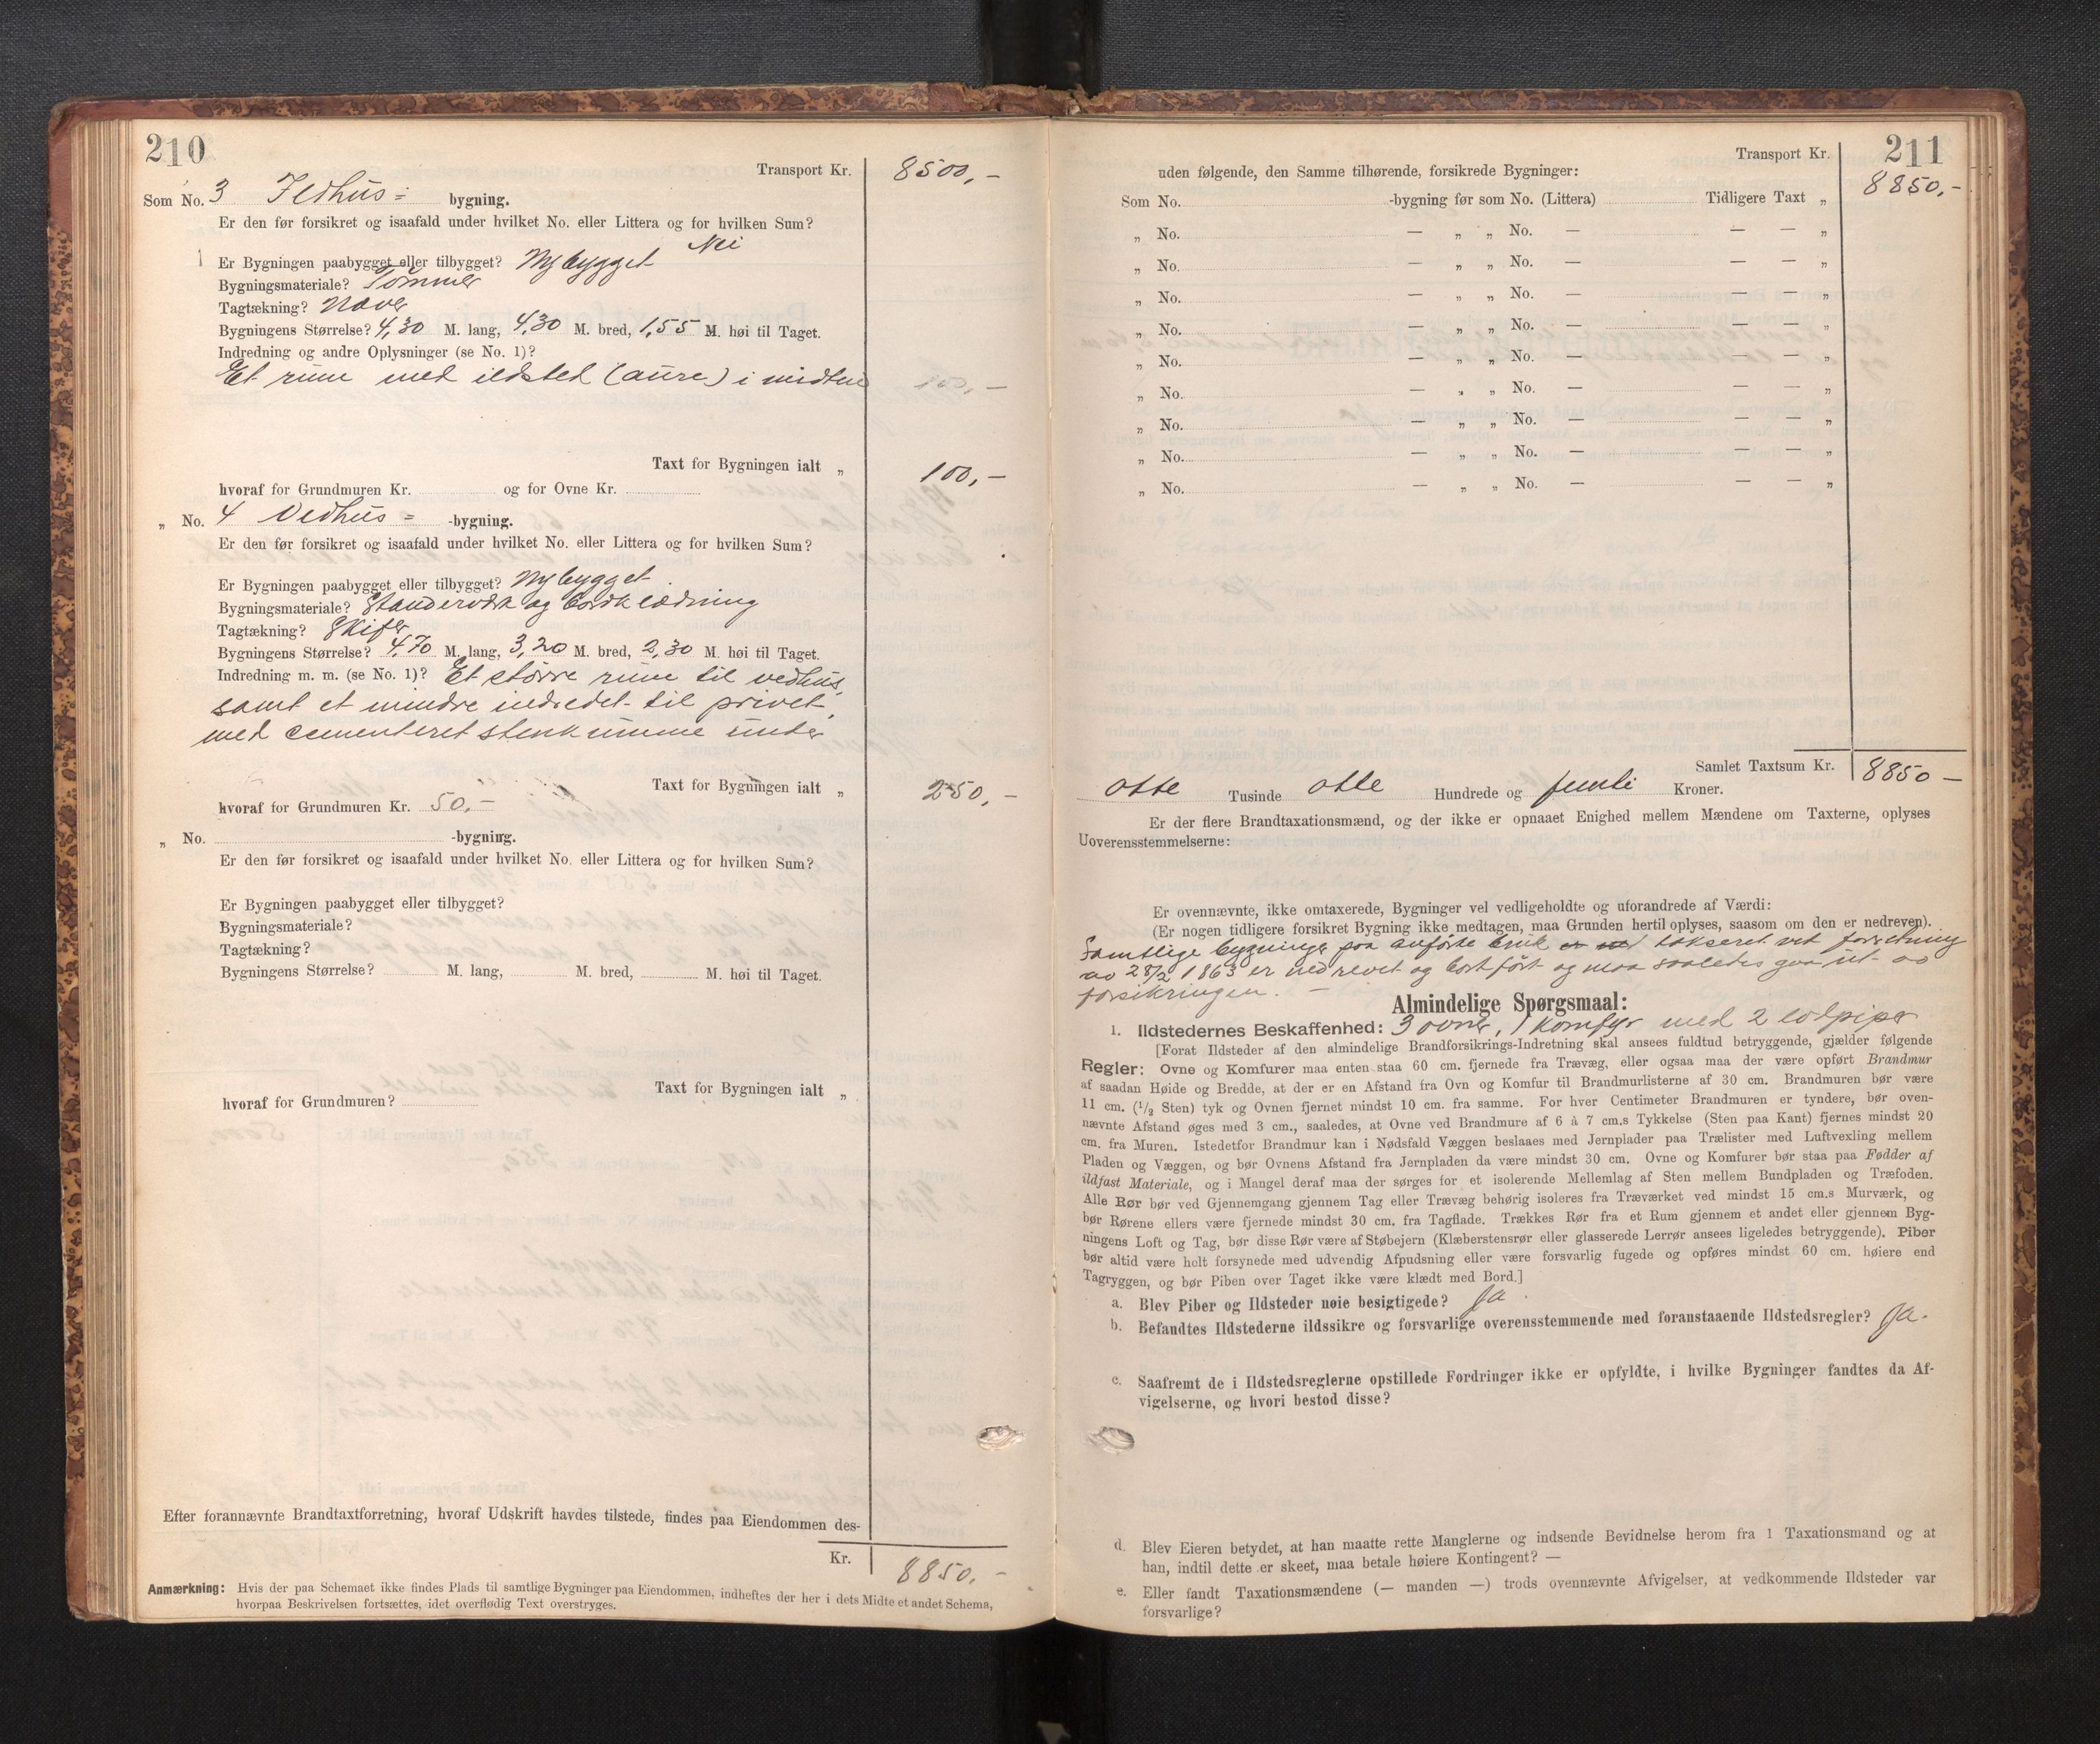 210
Transport Kr. 8500,-
Som No. 3 Ildhus = bygning.
Er den før forsikret og isaafald under hvilket No. eller Littera og for hvilken Sum?
Nei
Er Bygningen paabygget eller tilbygget? Nybygget
Bygningsmateriale? Tømmer
Tagtækning? Næver
Bygningens Størrelse? 4,30 M. lang, 4,30 M. bred, 1,55 M. høi til Taget.
Indredning og andre Oplysninger (se No. 1)?
Et rum med ildsted (aure) i midten 100,-
Taxt for Bygningen ialt „ 100,-
hvoraf for Grundmuren Kr. og for Ovne Kr.
„ No. 4 Vedhus = -bygning.
Er den før forsikret og isaafald under hvilket No. eller Littera og for hvilken Sum?
Er Bygningen paabygget eller tilbygget? Nybygget
Bygningsmateriale? Standerverk og bordklædning
Tagtækning? Skifer
Bygningens Størrelse? 4,70 M. lang, 3,20 M. bred, 2,30 M. høi til Taget.
Indredning m. m. (se No. 1)? Et større rum til vedhus,
samt et mindre indredet til privet,
med cementeret stenkumme under
Taxt for Bygningen ialt „ 250,-
hvoraf for Grundmuren Kr. 50,-
„ No. -bygning.
Er den før forsikret og isaafald under hvilket No. eller Littera og for hvilken Sum?
Er Bygningen paabygget eller tilbygget?
Bygningsmateriale?
Tagtækning?
Bygningens Størrelse? M. lang, M. bred, M. høi til Taget.
Taxt for Bygningen ialt „
hvoraf for Grundmuren?
Efter forannævnte Brandtaxtforretning, hvoraf Udskrift havdes tilstede, findes paa Eiendommen des-
Kr. 8850,-
Anmærkning: Hvis der paa Schemaet ikke findes Plads til samtlige Bygninger paa Eiendommen, indheftes der her i dets Midte et andet Schema,
hvorpaa Beskrivelsen fortsættes, idet overflødig Text overstryges.
211
Transport Kr.
8850,-
uden følgende, den Samme tilhørende, forsikrede Bygninger:
Som No. -bygning før som No. (Littera) Tidligere Taxt „
„ No. — „ „ No. — — — „
„ No. — „ „ No. — — — „
„ No. — „ „ No. — — — „
„ No. — „ „ No. — — — „
„ No. — „ „ No. — — — „
„ No. — „ „ No. — — — „
„ No. — „ „ No. — — — „
„ No. — „ „ No. — — — „
„ No. — „ „ No. — — — „
Samlet Taxtsum Kr. 8850 -
otte Tusinde otte Hundrede og femti Kroner.
Er der flere Brandtaxationsmænd, og der ikke er opnaaet Enighed mellem Mændene om Taxterne, oplyses
Uoverensstemmelserne:
Er ovennævnte, ikke omtaxerede, Bygninger vel vedligeholdte og uforandrede af Værdi:
(Er nogen tidligere forsikret Bygning ikke medtagen, maa Grunden hertil oplyses, saasom om den er nedreven).
Samtlige bygninger paa anførte bruk takseret ved forretning
av 28/2 1863 er nedrevet og bortført og maa saaledes gaa ut av
forsikringen. —
Almindelige Spørgsmaal:
1. Ildstedernes Beskaffenhed: 3 ovne, 1 komfyr med 2 lodpiper
[Forat Ildsteder af den almindelige Brandforsikrings-Indretning skal ansees fuldtud betryggende, gjælder følgende
Regler: Ovne og Komfurer maa enten staa 60 cm. fjernede fra Trævæg, eller ogsaa maa der være opført Brandmur
af saadan Høide og Bredde, at der er en Afstand fra Ovn og Komfur til Brandmurlisterne af 30 cm. Brandmuren bør være
11 cm. (1/2 Sten) tyk og Ovnen fjernet mindst 10 cm. fra samme. For hver Centimeter Brandmuren er tyndere, bør oven-
nævnte Afstand øges med 3 cm., saaledes, at Ovne ved Brandmure af 6 à 7 cm.s Tykkelse (Sten paa Kant) fjernes mindst 20
cm. fra Muren. Istedetfor Brandmur kan i Nødsfald Væggen beslaaes med Jernplader paa Trælister med Luftvexling mellem
Pladen og Væggen, og bør Ovnens Afstand fra Jernpladen da være mindst 30 cm. Ovne og Komfurer bør staa paa Fødder af
ildfast Materiale, og i Mangel deraf maa der sørges for et isolerende Mellemlag af Sten mellem Bundpladen og Træfoden.
Alle Rør bør ved Gjennemgang gjennem Tag eller Trævæg behørig isoleres fra Træværket ved mindst 15 cm.s Murværk, og
bør Rørene ellers være fjernede mindst 30 cm. fra Tagflade. Trækkes Rør fra et Rum gjennem et andet eller gjennem Byg-
ningens Loft og Tag, bør disse Rør være af Støbejern (Klæberstensrør eller glasserede Lerrør ansees ligeledes betryggende). Piber
bør altid være holt forsynede med udvendig Afpudsning eller være forsvarlig fugede og opføres mindst 60 cm. høiere end
Tagryggen, og bør Piben over Taget ikke være klædt med Bord.]
a. Blev Piber og Ildsteder nøie besigtigede? Ja.
b. Befandtes Ildstederne ildssikre og forsvarlige overensstemmende med foranstaaende Ildstedsregler? Ja.
c. Saafremt de i Ildstedsreglerne opstillede Fordringer ikke er opfyldte, i hvilke Bygninger fandtes da Af-
vigelserne, og hvori bestod disse?
d. Blev Eieren betydet, at han maatte rette Manglerne og indsende Bevidnelse herom fra 1 Taxationsmand og at
han, indtil dette er skeet, maa betale høiere Kontingent? —
e. Eller fandt Taxationsmændene (— manden —) trods ovennævnte Afvigelser, at vedkommende Ildsteder var
forsvarlige?